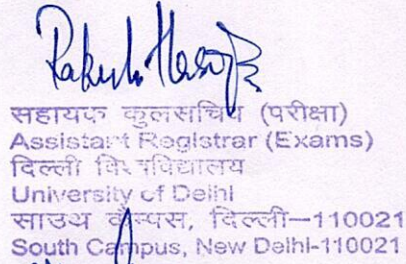 सहायक कुलसचिव (परीक्षा)
Assistant Registrar (Exams)
दिल्ली विश्वविद्यालय
University of Delhi
साउथ कैम्पस, दिल्ली—110021
South Campus, New Delhi-110021